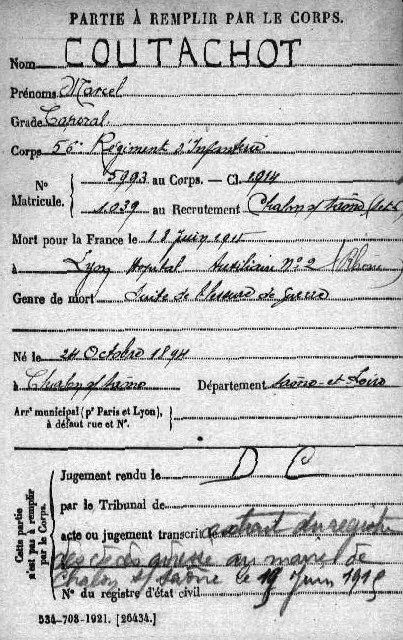 PARTIE À REMPLIR PAR LE CORPS.
Nom COUTACHOT
Prénoms Marcel
Grade Caporal
Corps 56e Régiment d'Infanterie
N° Matricule. { 5993 au Corps. — Cl. 1914
1039 au Recrutement Chalon s/ Saône (S et L)
Mort pour la France le 18 juin 1915
à Lyon Hopital Auxiliaire n° 2 (Rhône)
Genre de mort Suite de blessure de guerre
Né le 24 Octobre 1894
à Chalon s/ Saône Département Saône-et-Loire
Arrt municipal (pr Paris et Lyon), à défaut rue et N°. }
Cette partie n'est pas à remplir par le Corps. {
Jugement rendu le D C
par le Tribunal de
acte ou jugement transcrit le extrait du registre
des décès adressé au maire de
Chalon s/ Saône le 19 Juin 1915
N° du registre d'état civil
534-708-1921. [26434.]